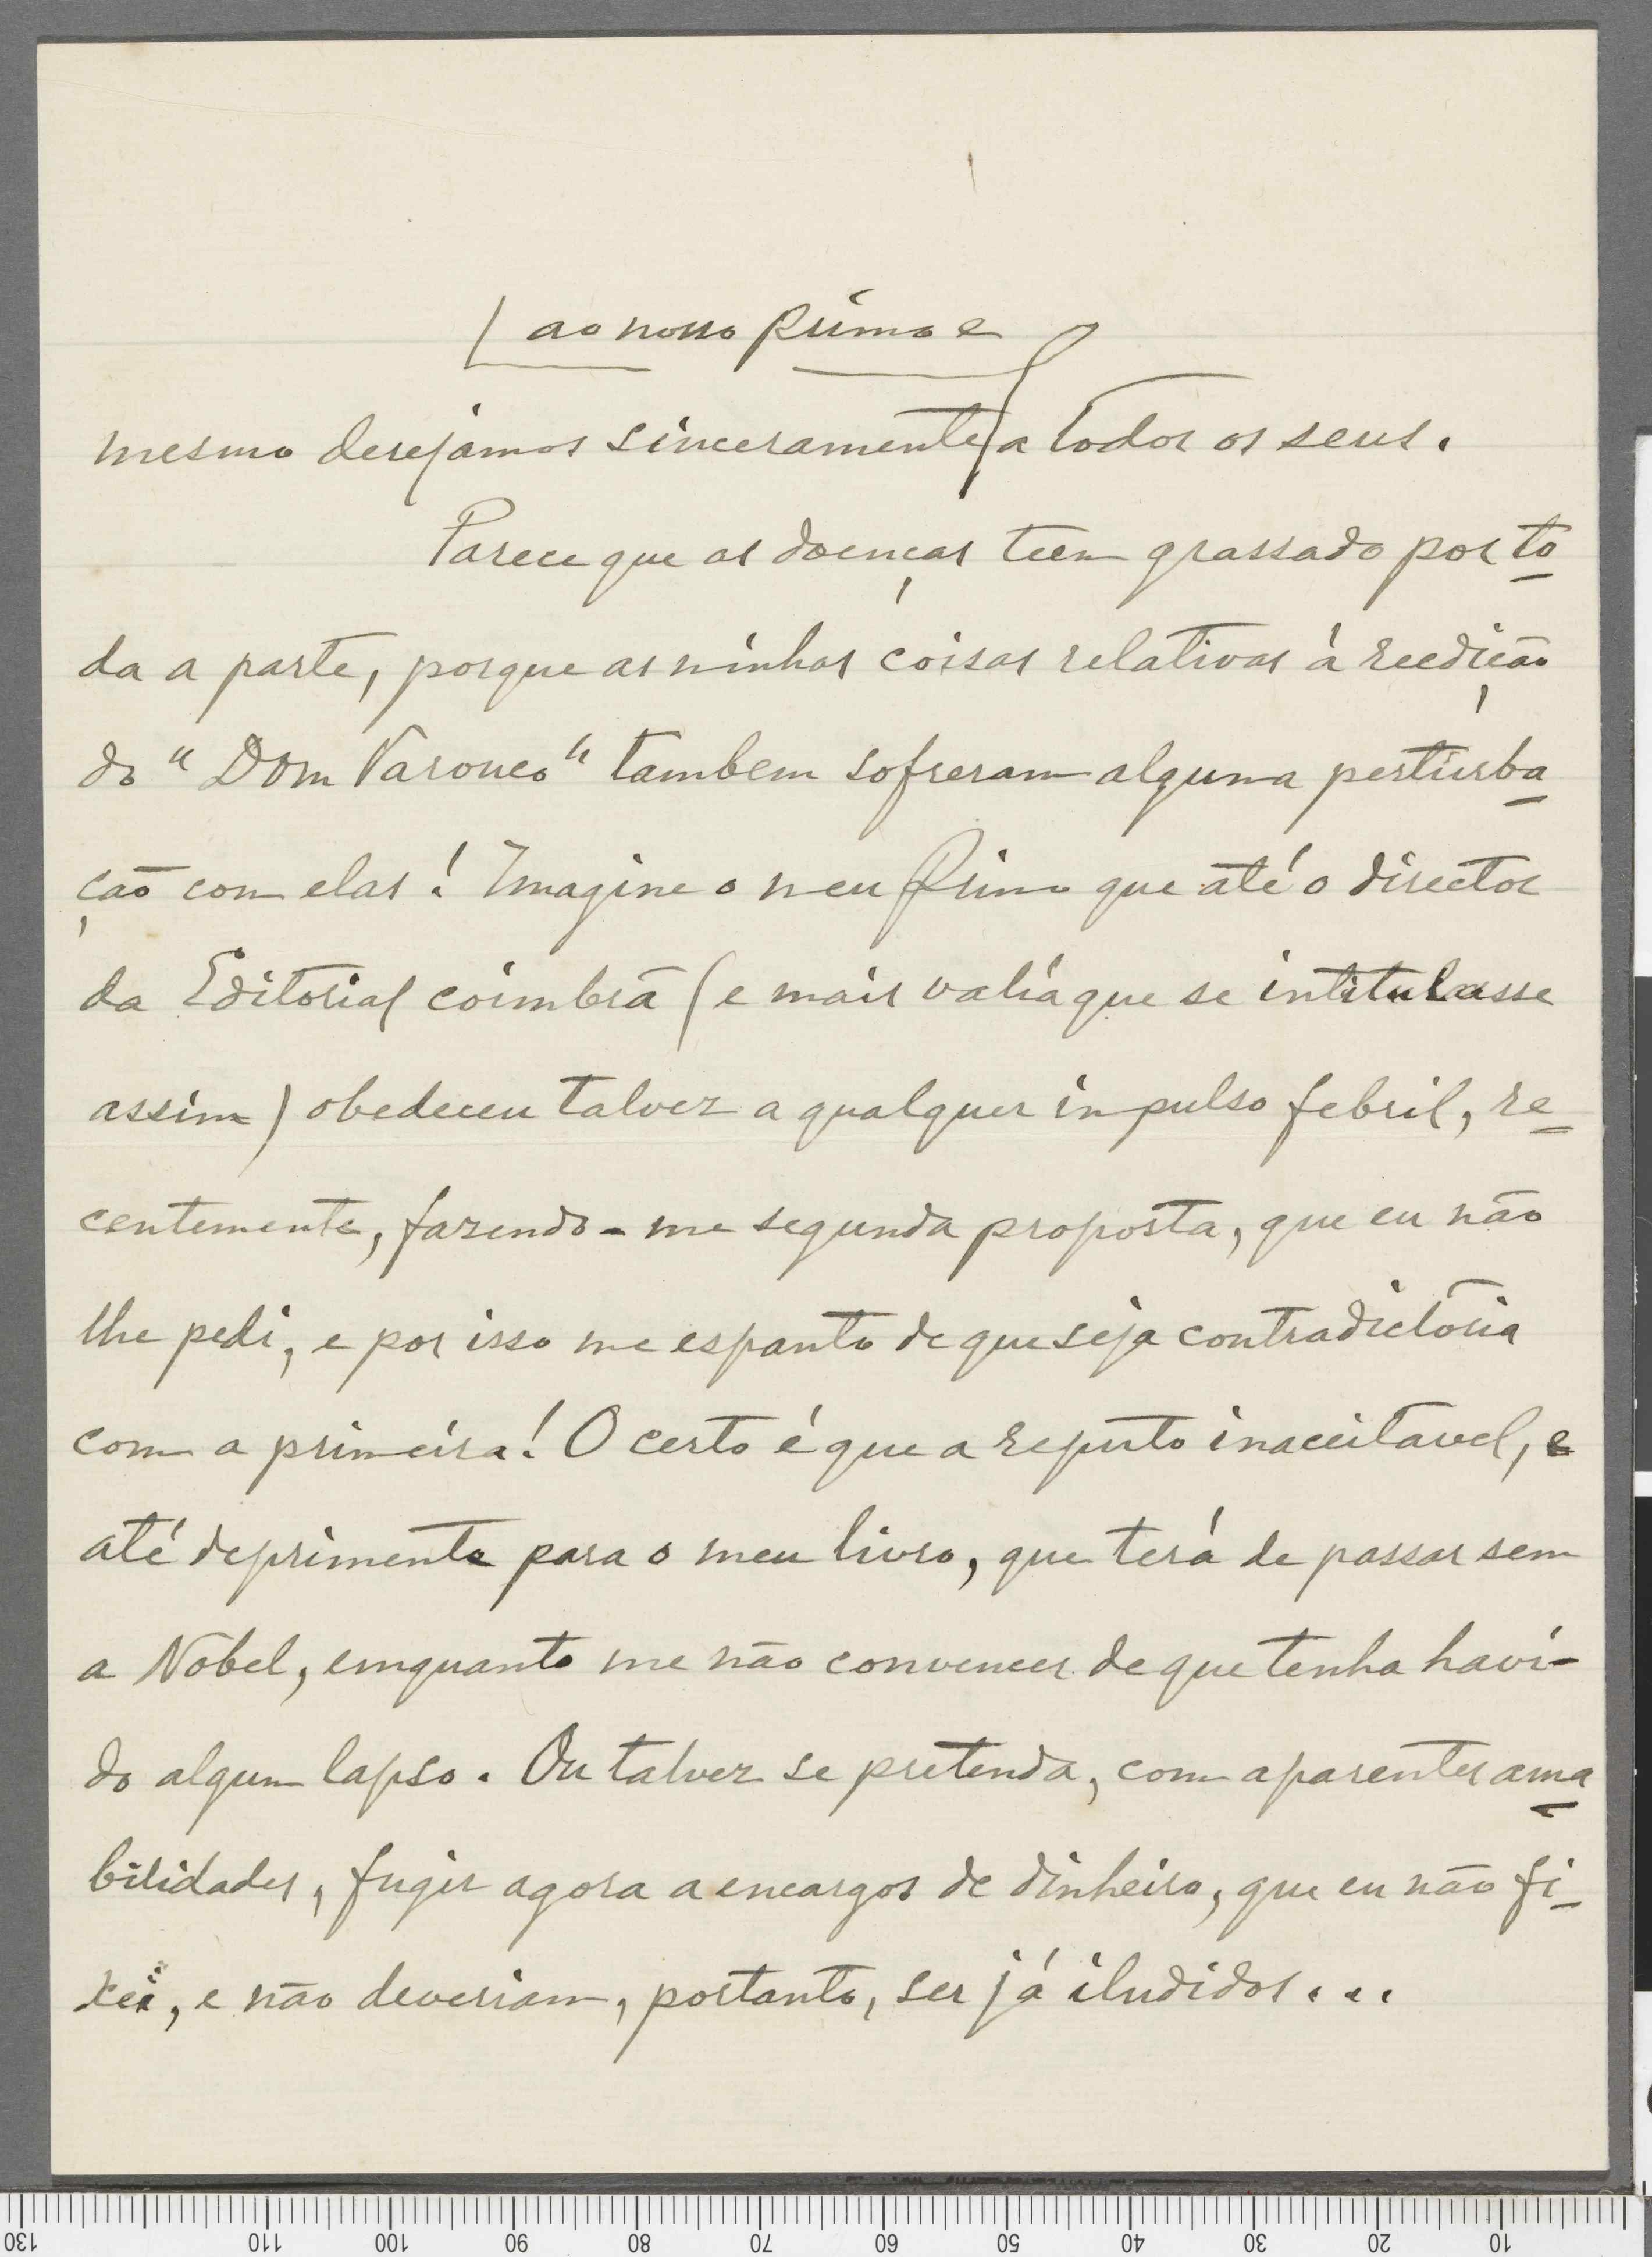 ao nosso Primo e
mesmo desejâmos sinceramente a todos os seus.
Parece que as doenças teem grassado por to
da a parte, porque as minhas coisas relativas á reedição
do "Dom Varonco" tambem sofreram alguma perturba
ção com elas! Imagine o meu Primo que até o director
da Editorial coimbrã (e mais valia que se intitulasse
assim) obedeceu talvez a qualquer impulso febril, re
centemente, fazendo-me segunda proposta, que eu não
lhe pedi, e por isso me espanto de que seja contradictória
com a primeira! O certo é que a reputo inaceitavel, e
até deprimente para o meu livro, que terá de passar sem
a Nobel, emquanto me não convencer de que tenha havi-
do algum lapso. Ou talvez se pretenda, com aparentes ama
bilidades, fugir agora a encargos de dinheiro, que eu não fi
xei, e não deveriam, portanto, ser já iludidos...
130 110 100 90 80 70 60 50 40 30 20 10